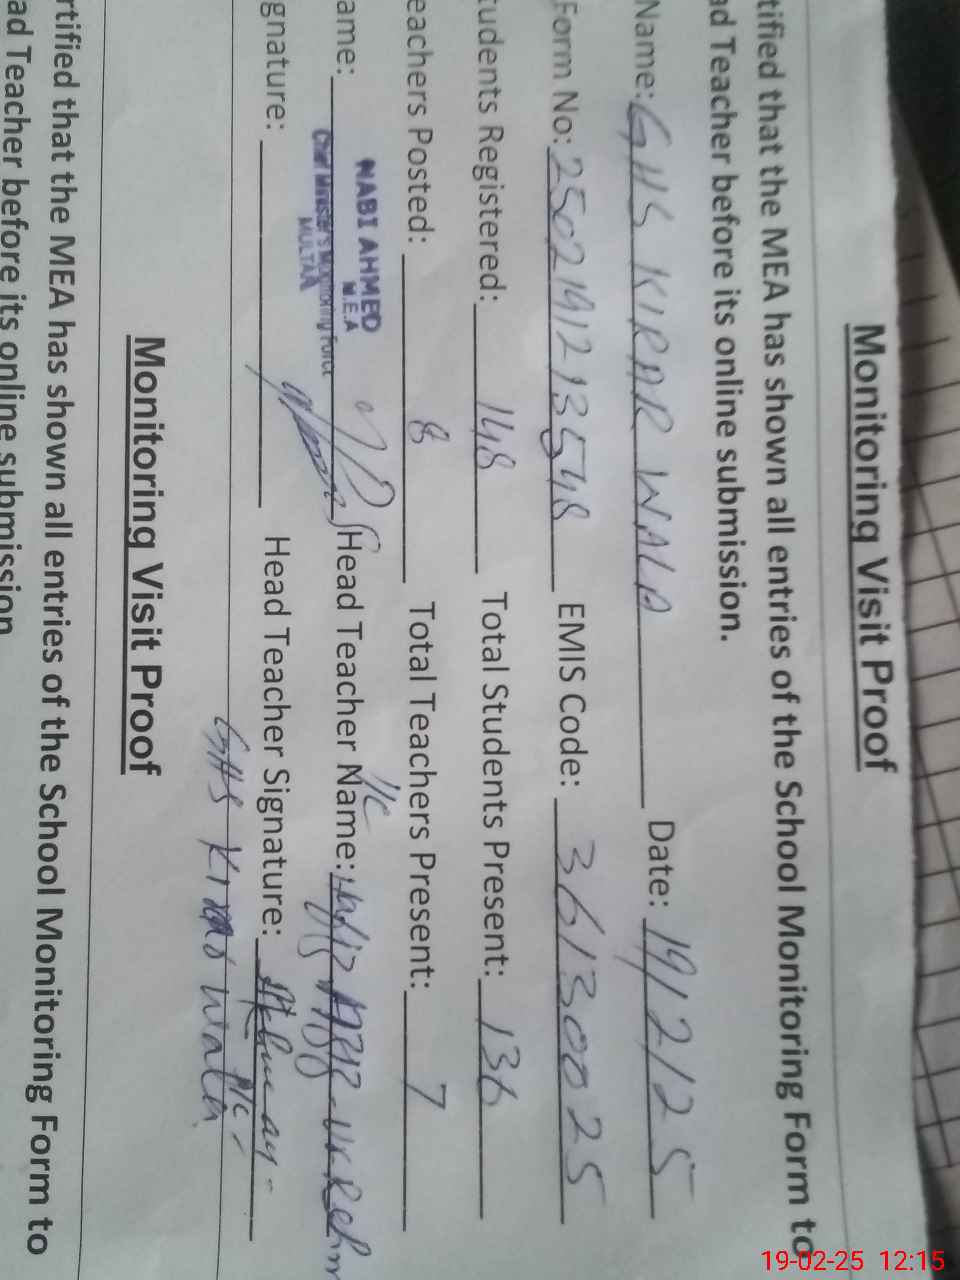 Monitoring Visit Proof
tified that the MEA has shown all entries of the School Monitoring Form to
ad Teacher before its online submission.
Name: GHS KIRAR WALA Date: 19/2/25
Form No: 2502191213548 EMIS Code: 36130025
tudents Registered: 148 Total Students Present: 136
eachers Posted: 8 Total Teachers Present: 7
NABI AHMED
M.E.A
Chief Minister's Monitoring Force
MULTAN
ame: Head Teacher Name: Hafiz Aziz-ur-Rehm
I/C
gnature: Head Teacher Signature:
I/C
GHS Kirar Wala
Monitoring Visit Proof
rtified that the MEA has shown all entries of the School Monitoring Form to
ad Teacher before its online submission
19-02-25 12:15